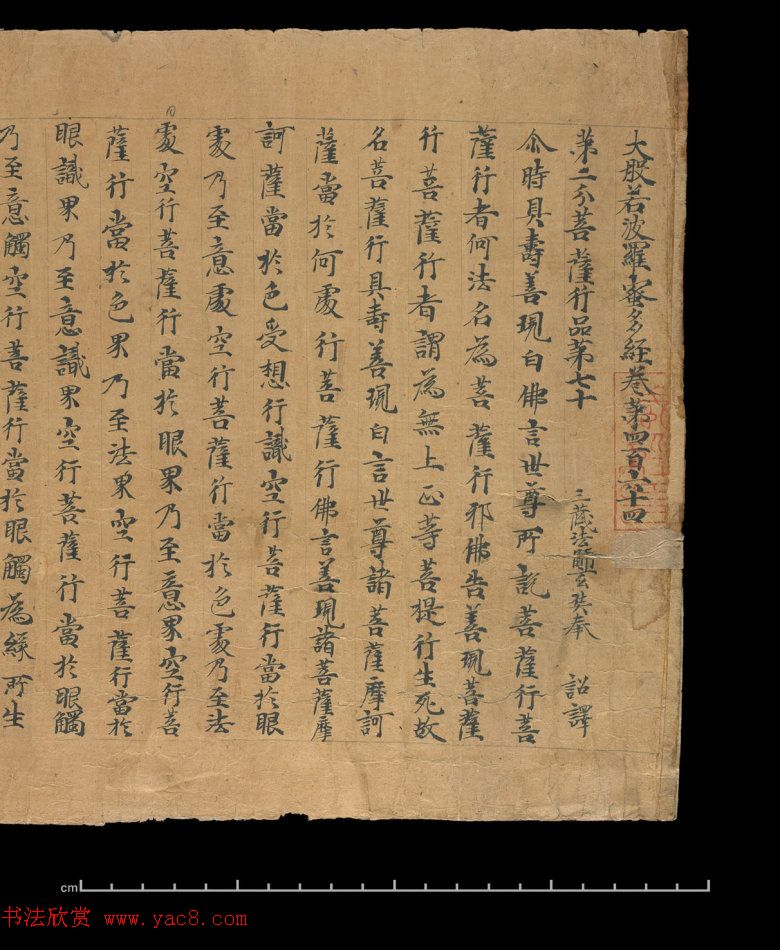 大般若波羅蜜多經卷第四百六十四
第二分菩薩行品第七十
三藏法師玄奘奉 詔譯
尒時具壽善現白佛言世尊所說菩薩行菩
薩行者何法名為菩薩行耶佛告善現菩薩
行菩薩行者謂為無上正等菩提行生死故
名菩薩行具壽善現白言世尊諸菩薩摩訶
薩當於何處行菩薩行佛言善現諸菩薩摩
訶薩當於色受想行識空行菩薩行當於眼
處乃至意處空行菩薩行當於色處乃至法
處空行菩薩行當於眼界乃至意界空行菩
薩行當於色界乃至法界空行菩薩行當於
眼識界乃至意識界空行菩薩行當於眼觸
乃至意觸空行菩薩行當於眼觸為緣所生
cm
书法欣赏 www.yac8.com